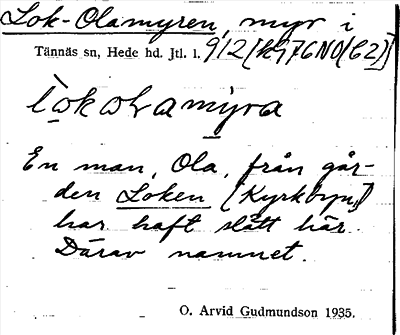 Lok-Olamyren, myr i
Tännäs sn, Hede hd. Jtl. l. 912 (kg76NO(C2))
En man, Ola, från går-
den Loken (Kyrkbyn)
har haft slått här.
Därav namnet.
O. Arvid Gudmundson 1935.